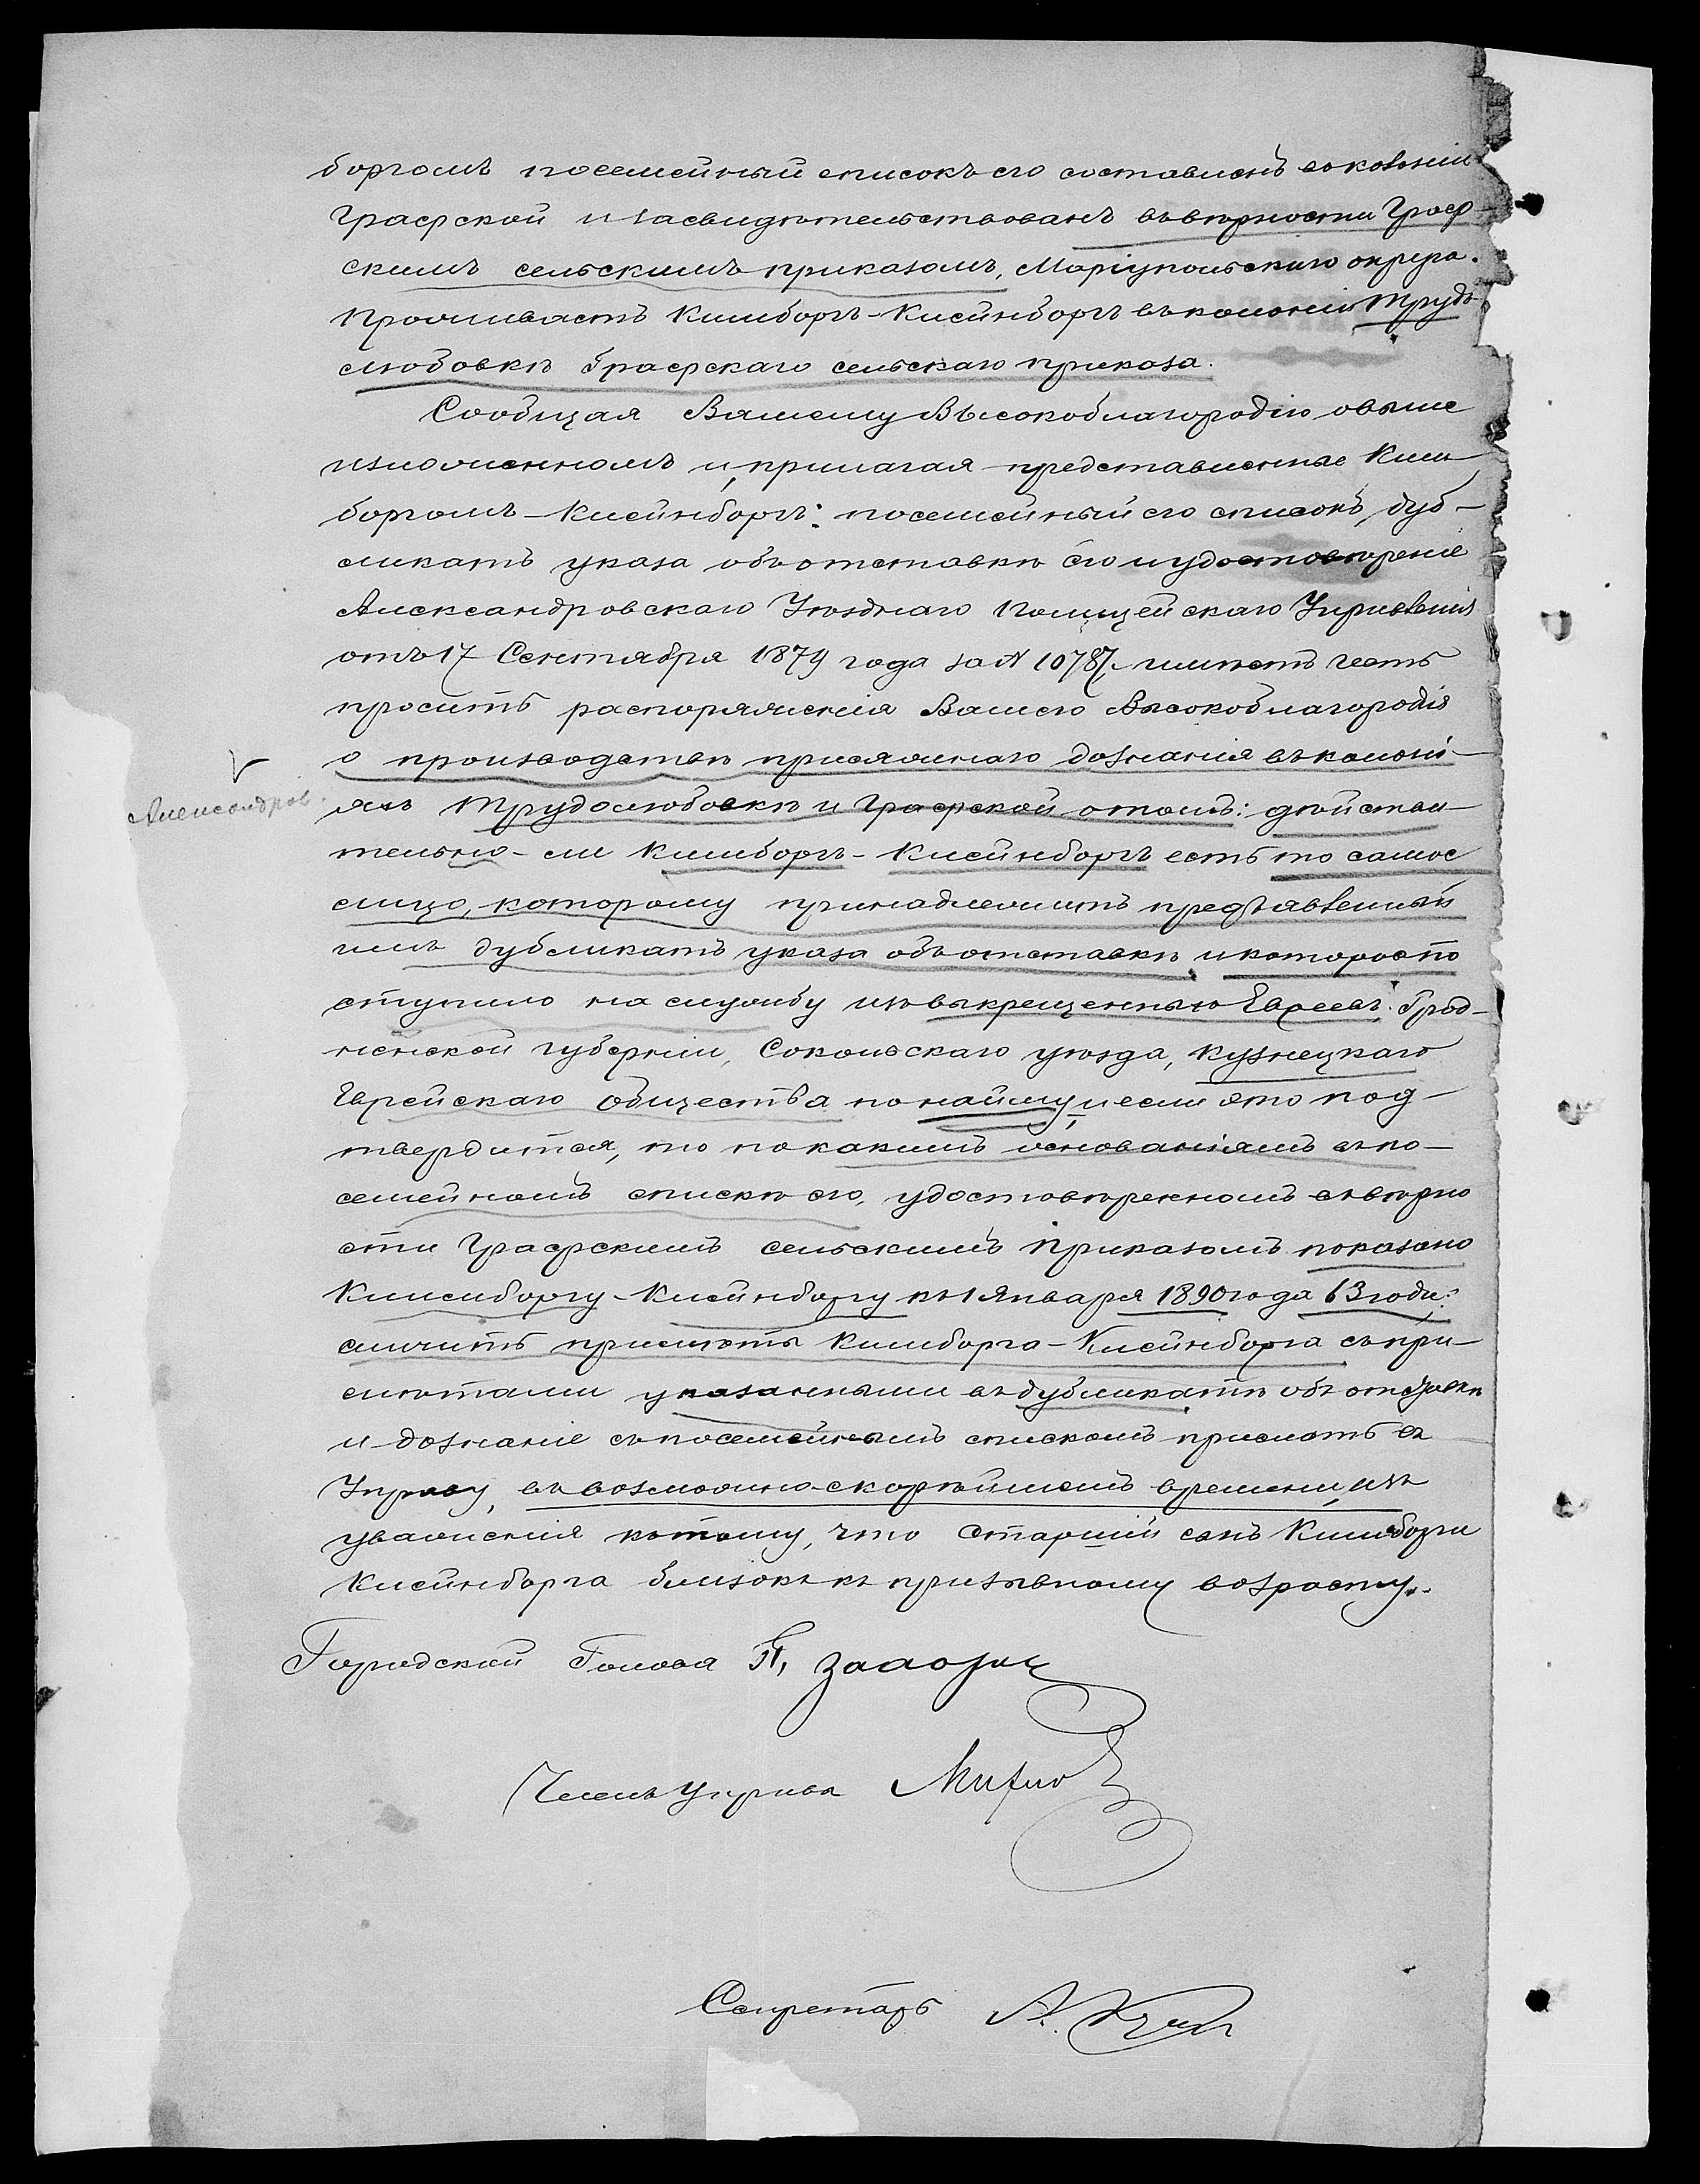 боргомъ посемейный списокъ его составленъ въ колоніи
Графской и засвидѣтельствованъ въ вѣрности Граф-
скимъ сельскимъ приказомъ, Маріупольскаго округа.
Проживаетъ Кишборгъ-Клейнборгъ въ колоніи Трудо
любовкѣ Графскаго сельскаго приказа.
Сообщая Вашему Высокоблагородію о выше
изложенномъ и, прилагая представленные
боргомъ-Клейнборгъ: посемейный его списокъ, дуб-
ликатъ указа объ отставкѣ его и удостовѣреніе
Александровскаго Уѣзднаго Полицейскаго Управленія
отъ 17 Сентября 1879 года за № 10787, имѣетъ честь
просить распоряженія Вашего Высокоблагородія
о производствѣ присяжнаго дознанія въ колоні-
Александров.
яхъ Трудолюбовкѣ и Графской о томъ: дѣйстви-
тельно-ли Кишборгъ-Клейнборгъ есть то самое
лицо, которому принадлежитъ представленный
имъ дубликатъ указа объ отставкѣ и которое по
ступило на службу изъ выкрещенныхъ Евреевъ Грод-
ненской губерніи, Сокольскаго уѣзда, Кузнецкаго
Еврейскаго общества по найму, и если это под-
твердится, то по какимъ основаніямъ въ по-
семейномъ спискѣ его, удостовѣренномъ въ вѣрно
сти Графскимъ сельскимъ приказомъ показано
Кишборгу-Клейнборгу къ 1 Января 1890 года 63 года:
сличить примѣты Кишборга-Клейнборга съ при-
мѣтами указанными въ дубликатѣ объ отставкѣ
и дознаніе съ посемейнымъ спискомъ прислать въ
Управу, въ возможно-скорѣйшемъ времени, изъ
уваженія къ тому, что старшій сынъ Кишборга
Клейнборга близокъ къ призывному возрасту.
Городской Голова П.
Членъ Управы
Секретарь А.